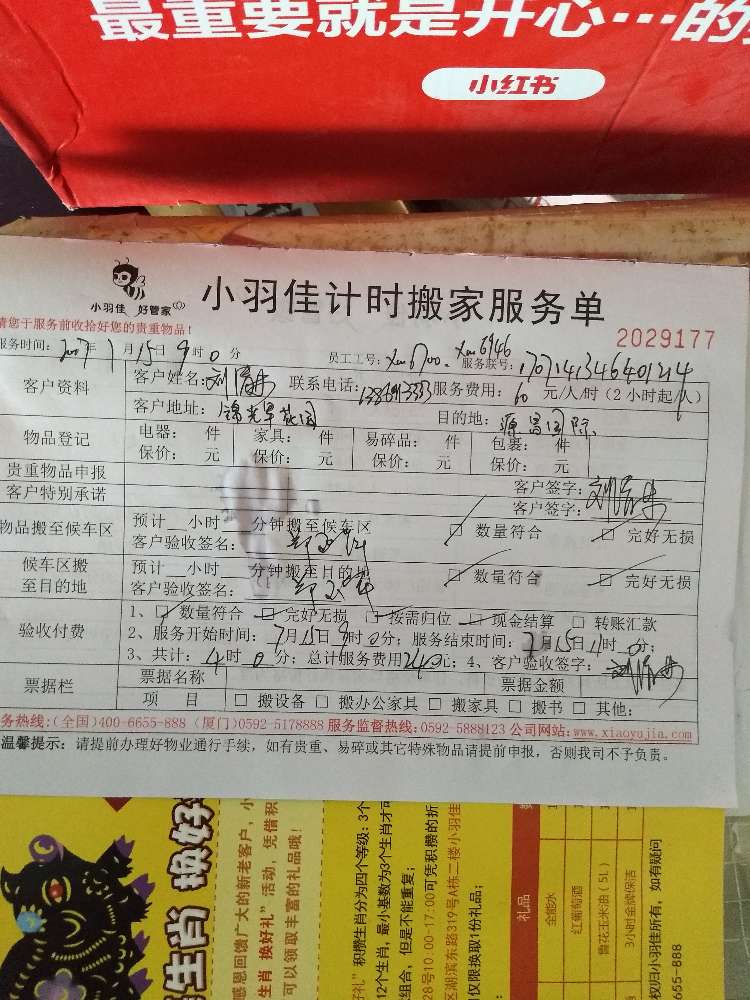 最重要就是开心…的
小红书
小羽佳 好管家
小羽佳计时搬家服务单
2029177
请您于服务前收拾好您的贵重物品!
服务时间: 年7月15日9时0分 员工工号: 服务联号:
客户资料 客户姓名: 联系电话: 服务费用:60元/人/时(2小时起/人)
客户地址: 目的地:源昌国际
物品登记 电器: 件 家具: 件 易碎品: 件 包裹: 件
保价: 元 保价: 元 保价: 元 保价: 元
贵重物品申报 客户签字:
客户特别承诺 客户签字:
物品搬至候车区 预计__小时 分钟搬至候车区 □ 数量符合 □ 完好无损
客户验收签名:
候车区搬至目的地 预计__小时 分钟搬至目的地 □ 数量符合 □ 完好无损
客户验收签名:
验收付费 1、□ 数量符合 □ 完好无损 □ 按需归位 □ 现金结算 □ 转账汇款
2、服务开始时间:7月15日9时0分; 服务结束时间:7月15日11时0分;
3、共计:4时0分; 总计服务费用240元; 4、客户验收签字:
票据栏 票据名称 票据金额
项 目 □ 搬设备 □ 搬办公家具 □ 搬家具 □ 搬书 □ 其他:
务热线:(全国)400-6655-888 (厦门)0592-5178888 服务监督热线:0592-5888123 公司网站:www.xiaoyujia.com
温馨提示: 请提前办理好物业通行手续, 如有贵重、易碎或其它特殊物品请提前申报, 否则我司不予负责。
生肖 换好
感恩回馈广大的新老客户, 小
生肖 换好礼”活动, 凭借积
可以领取丰富的礼品哦!
好礼”积攒生肖分为四个等级: 3个
12个生肖, 最小基数为3个生肖才可
组合, 但是不能重复;
28号10:00-17:00可凭积攒的折
区湖滨东路319号A栋二楼小羽佳
仅限换取1份礼品;
礼品
全能水
红葡萄酒
鲁花玉米油(5L)
3小时金牌保洁
权归小羽佳所有, 如有疑问
655-888